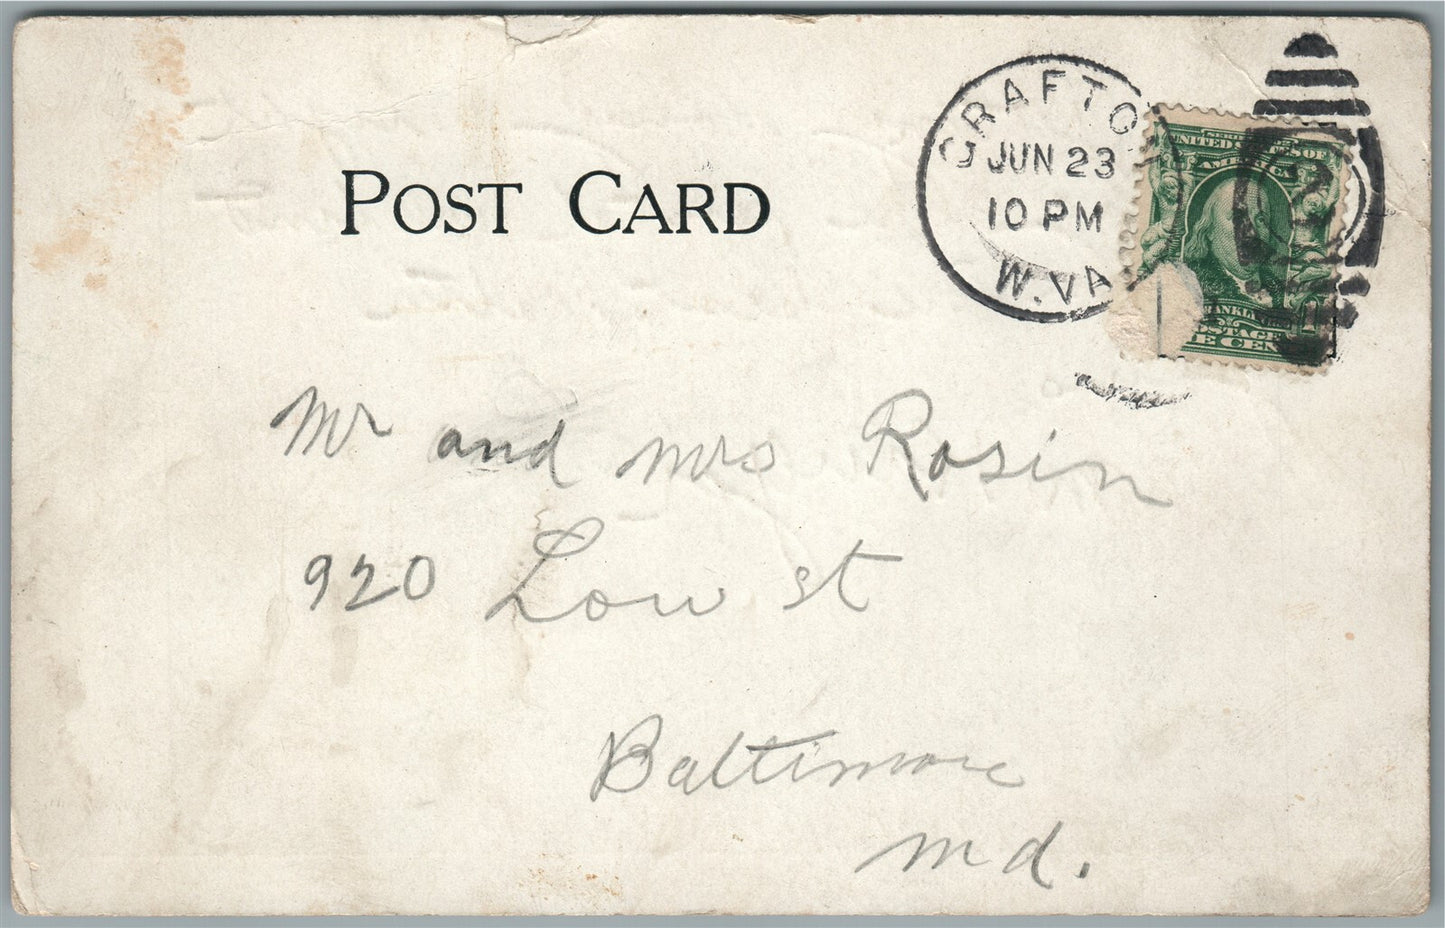 POST CARD
GRAFTON
JUN 23
10 PM
W. VA
SERIES
UNITED STATES OF
AMERICA
FRANKLIN
POSTAGE
ONE CENT
Mr and Mrs Rosin
920 Low st
Baltimore
Md.